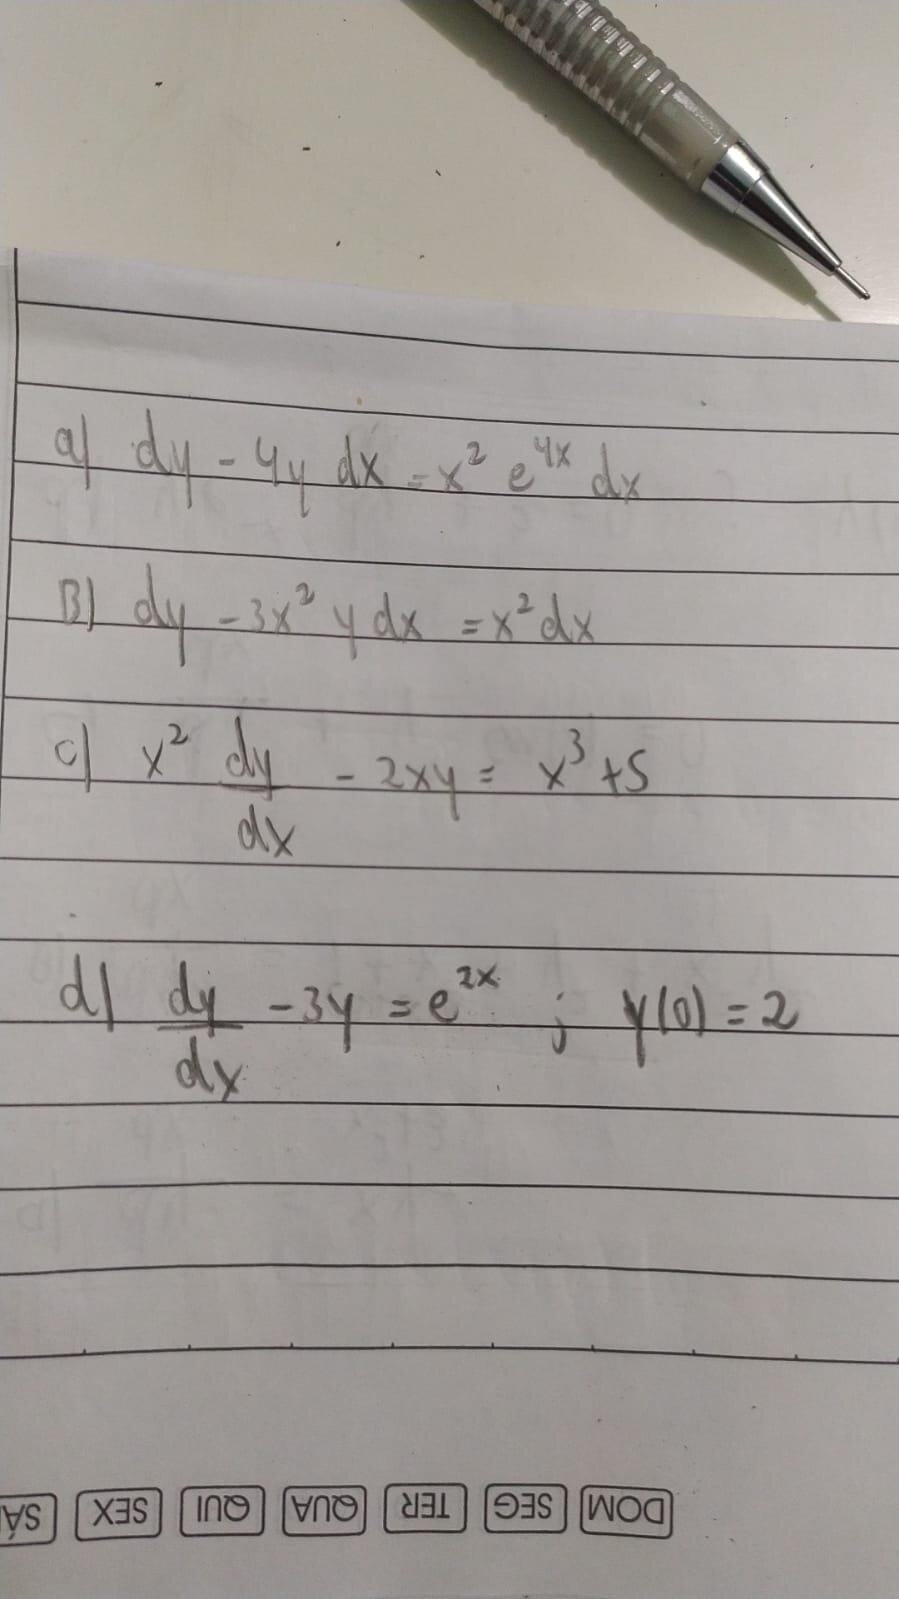 a) dy - 4y dx = x² e^4x dx
B) dy - 3x² y dx = x² dx
c) x² dy/dx - 2xy = x³ + 5
d) dy/dx - 3y = e^2x ; y(0) = 2
SÁ SEX QUI QUA TER SEG DOM